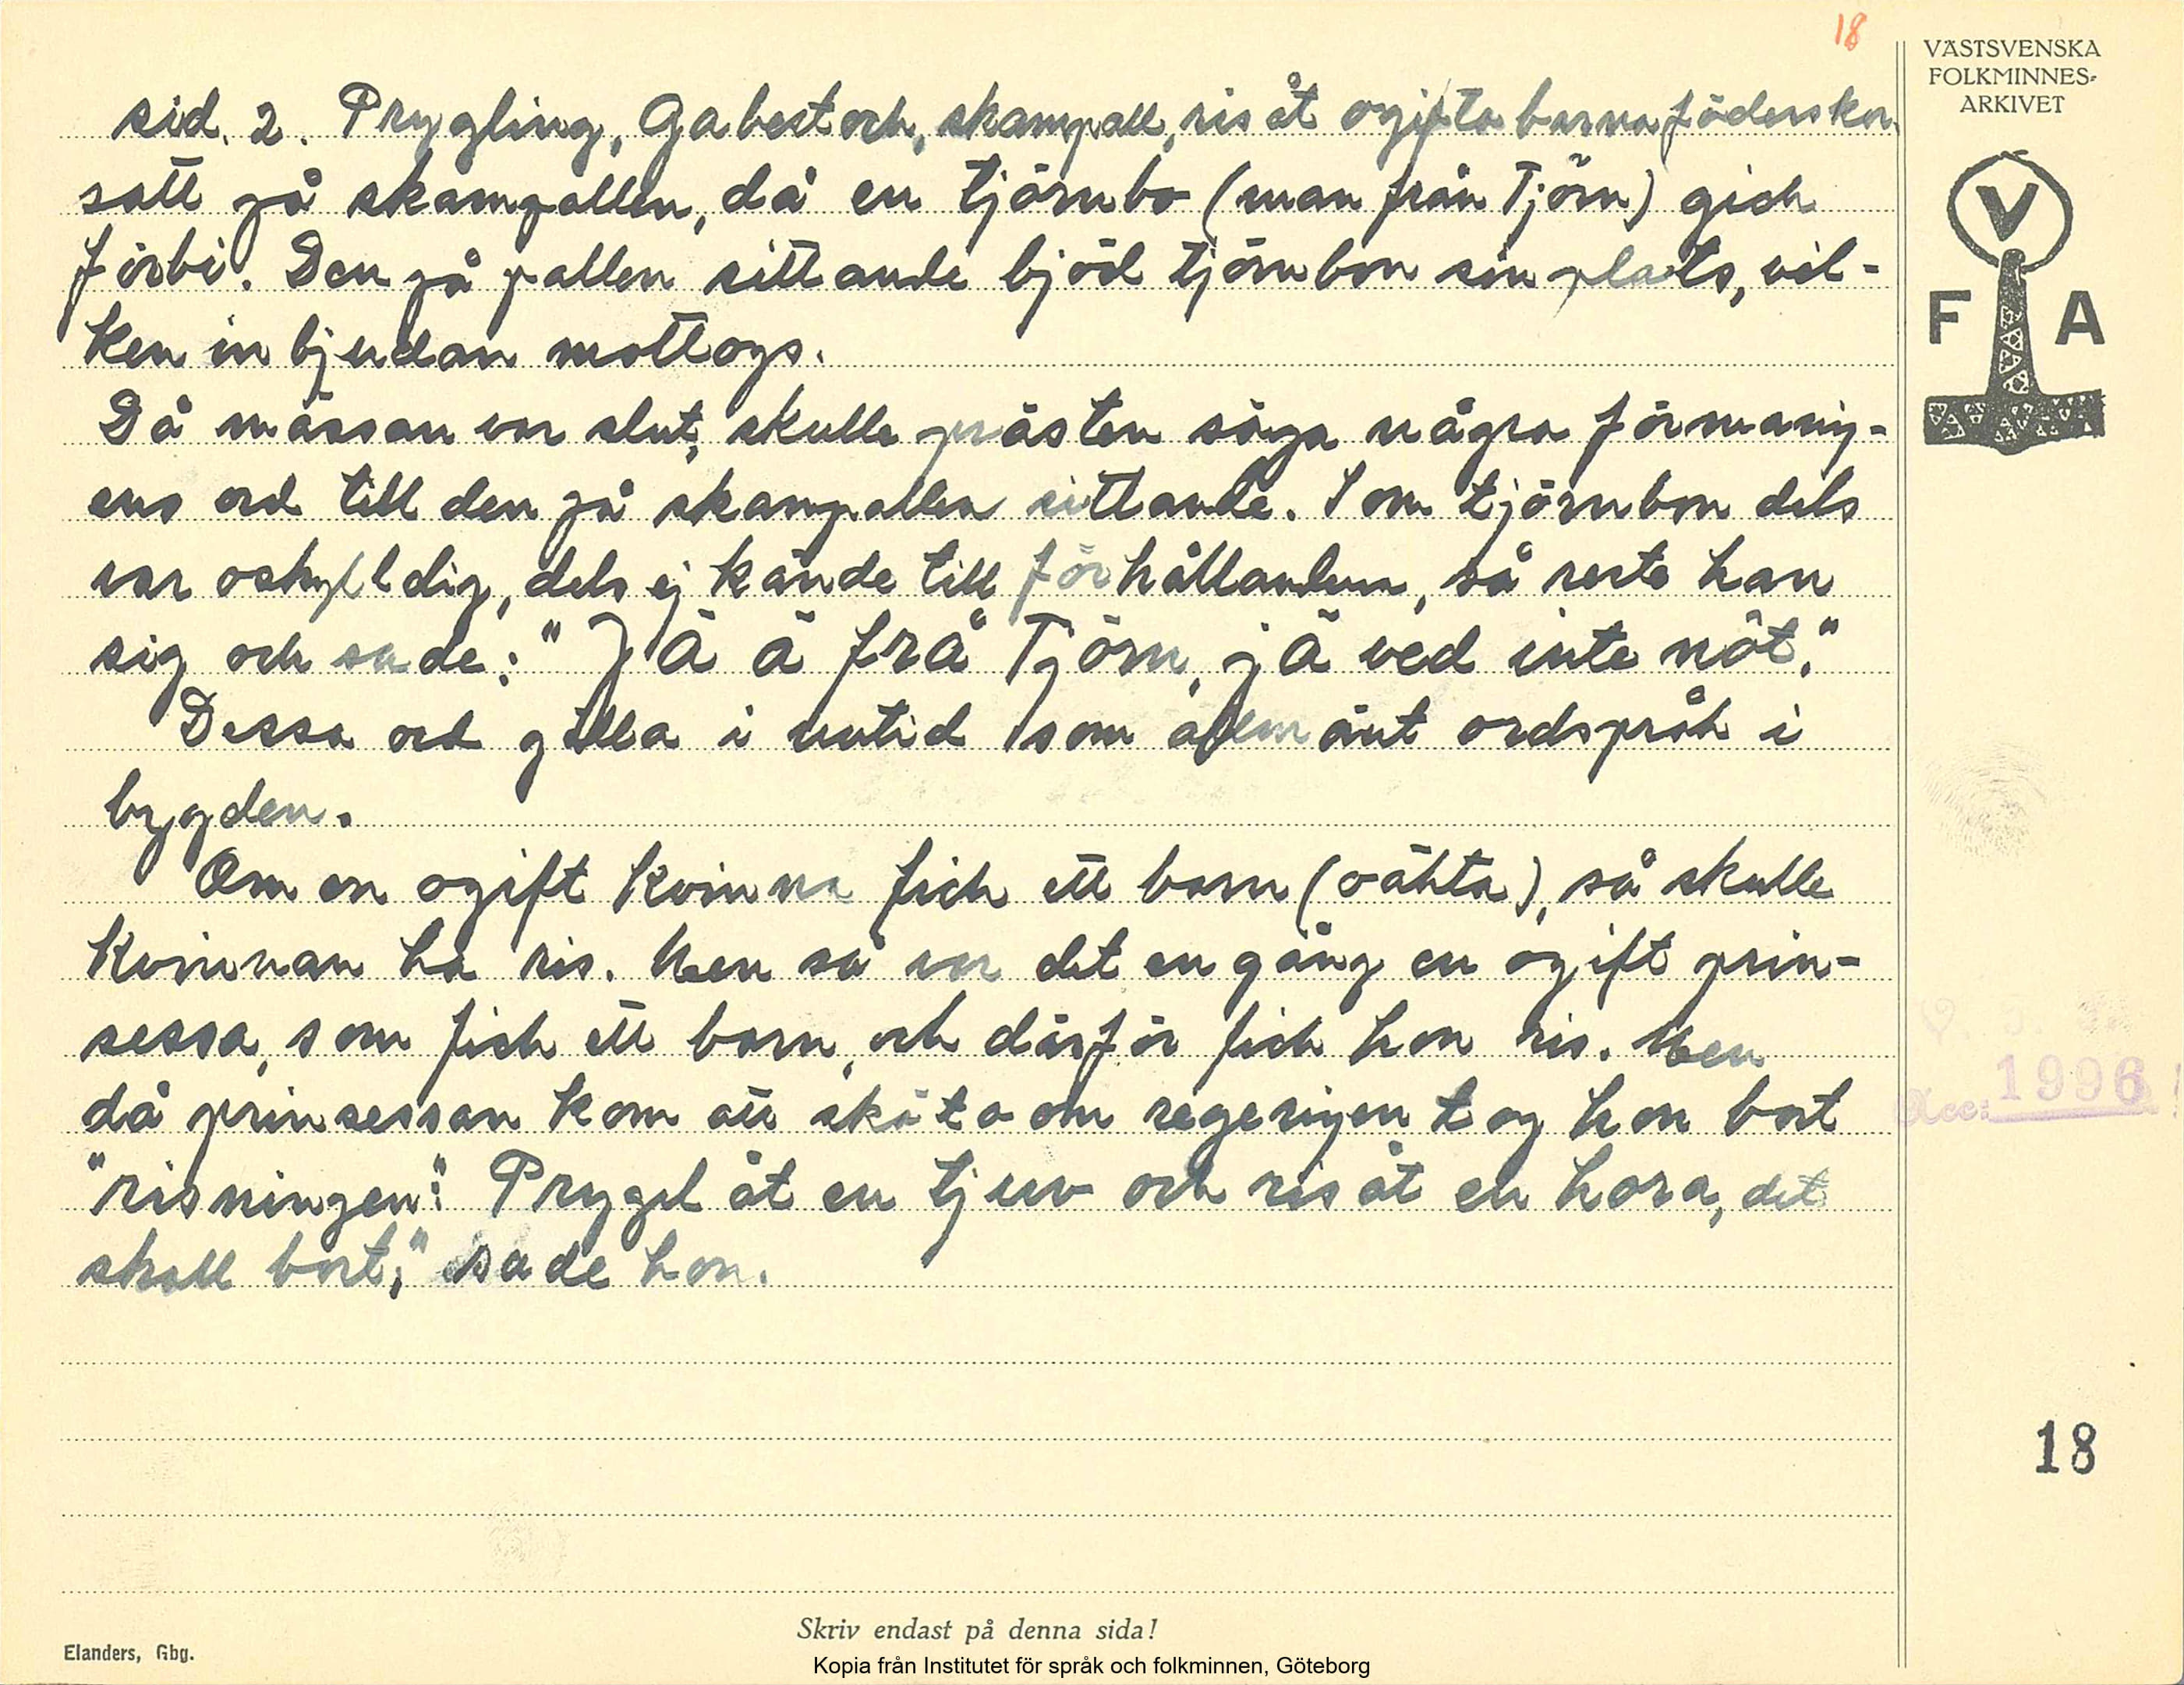 18
VÄSTSVENSKA
FOLKMINNES-
ARKIVET
V
F A
sid. 2. Prygling, Gabestock, skampall, ris åt ogifta barnaföderskor.
satt på skampallen, då en tjörnbo (man från Tjörn) gick
förbi. Den på pallen sittande bjöd tjörnbon sin plats, vil-
ken inbjudan mottogs.
Då mässan var slut, skulle prästen säga några förmaning-
ens ord till den på skampallen sittande. Som tjörnbon dels
var oskylldig, dels ej kände till förhållanden, så reste han
sig och sade: "Jä ä frå Tjörn, jä ved inte nöt."
Dessa ord gälla i nutid som allmänt ordspråk i
bygden.
Om en ogift kvinna fick ett barn (oäkta), så skulle
kvinnan ha ris. Men så var det en gång en ogift prin-
sessa, som fick ett barn, och därför fick hon ris. Men
då prinsessan kom att sköta om regeringen tog hon bort
"risningen". Prygel åt en tjuv och ris åt en hora, det
skall bort," sade hon.
Acc: 1996
18
Skriv endast på denna sida!
Elanders, Gbg.
Kopia från Institutet för språk och folkminnen, Göteborg